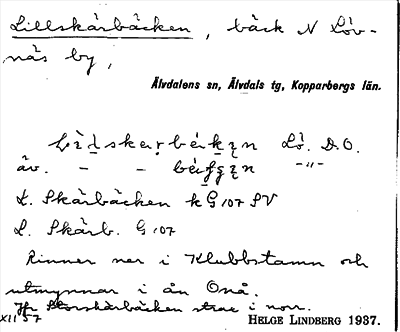 Lillskärbäcken, bäck N Löv-
näs by,
Älvdalens sn, Älvdals tg, Kopparbergs län.
Lö. D.O.
äv. — — —"—
L. Skärbäcken k G 107 SV
L. Skärb. G 107
Rinner ner i Klubbstamn och
utmynnar i ån Onå.
Jfr Storskärbäcken strax i norr.
XII 57 HELGE LINDBERG 1937.